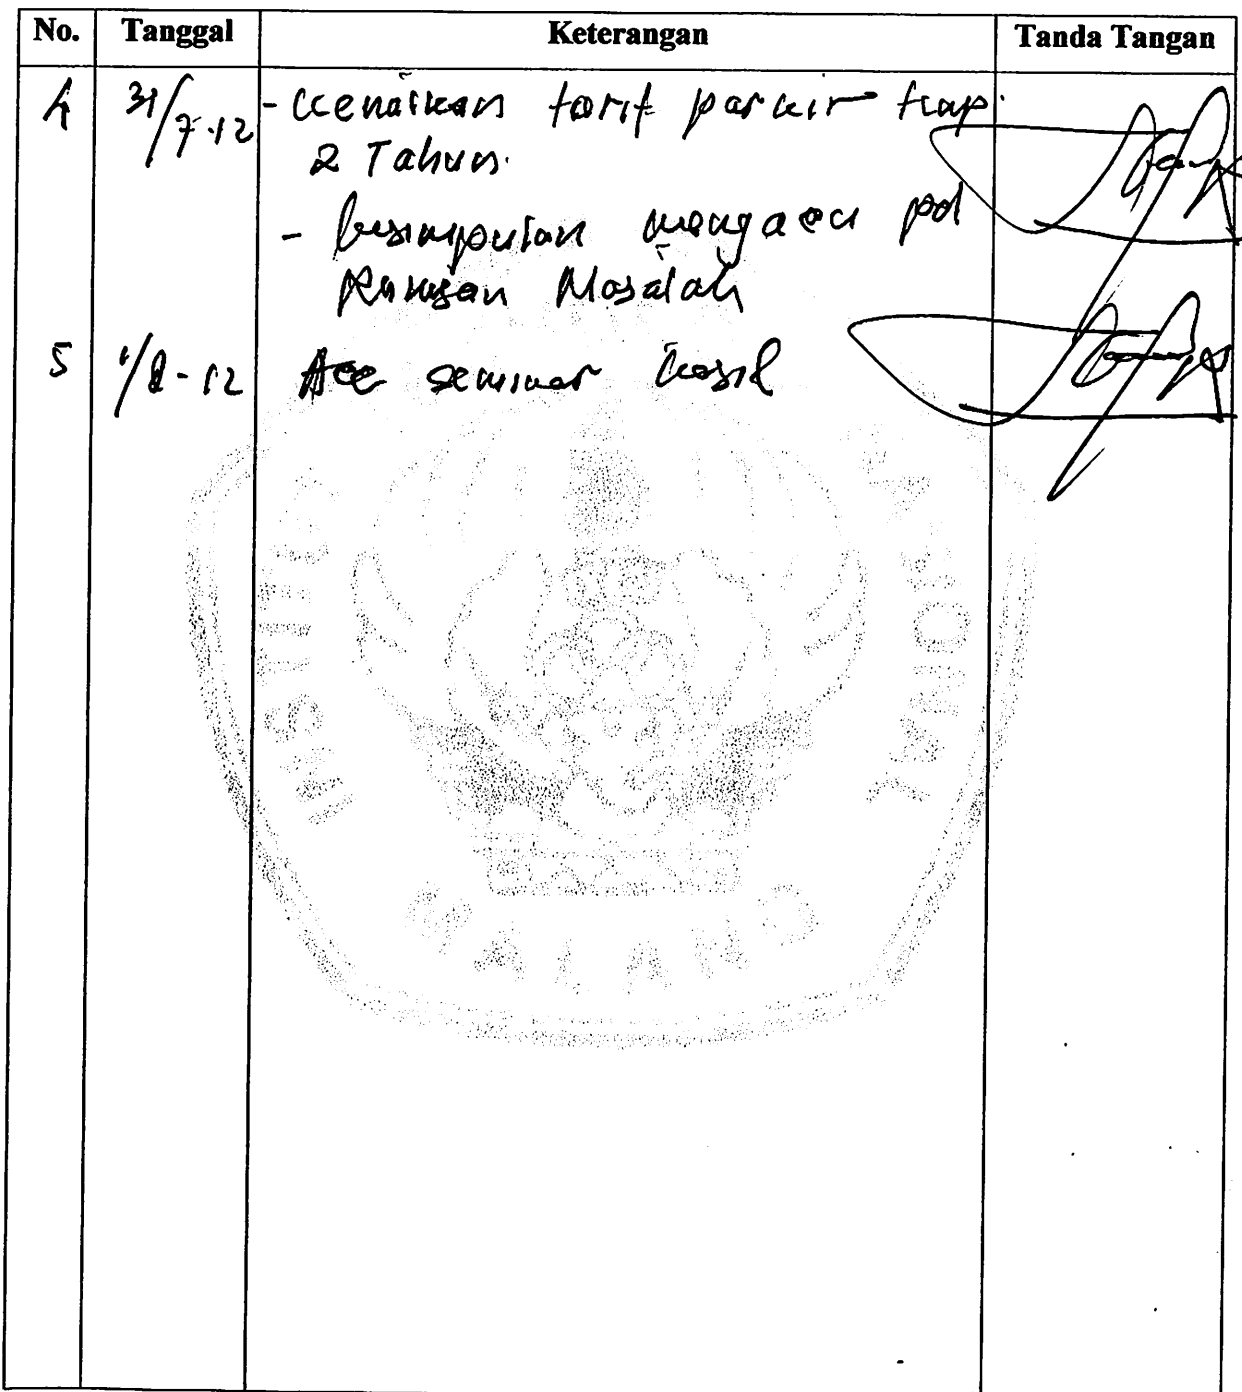 No. Tanggal Keterangan Tanda Tangan
4 31/7-12 - Kenaikan tarif parkir tiap
2 Tahun.
- kesimpulan mengacu pd
Rumusan Masalah
5 1/8-12 Acc seminar hasil
INSTITUT
MALANG